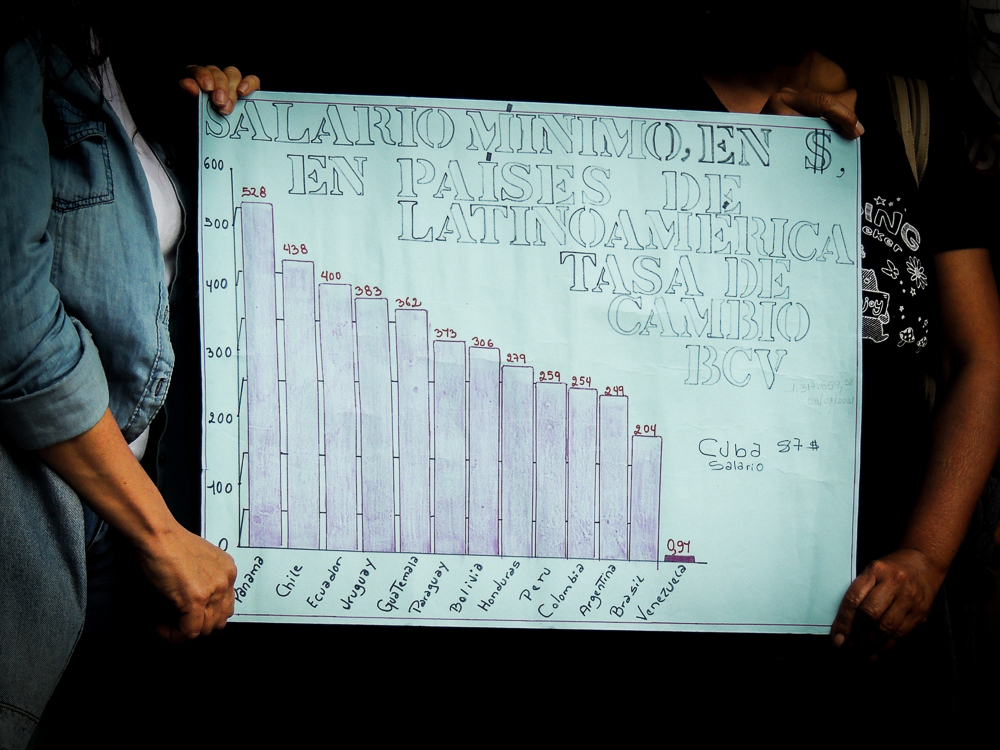 SALARIO MÍNIMO, EN $,
EN PAÍSES DE
LATINOAMÉRICA
TASA DE
CAMBIO
BCV
600
500
400
300
200
100
0
528
438
400
383
362
373
306
279
259
254
249
204
0,97
Cuba 87 $
Salario
Panama
Chile
Ecuador
Uruguay
Guatemala
Paraguay
Bolivia
Honduras
Peru
Colombia
Argentina
Brasil
Venezuela
ING
eker
joy